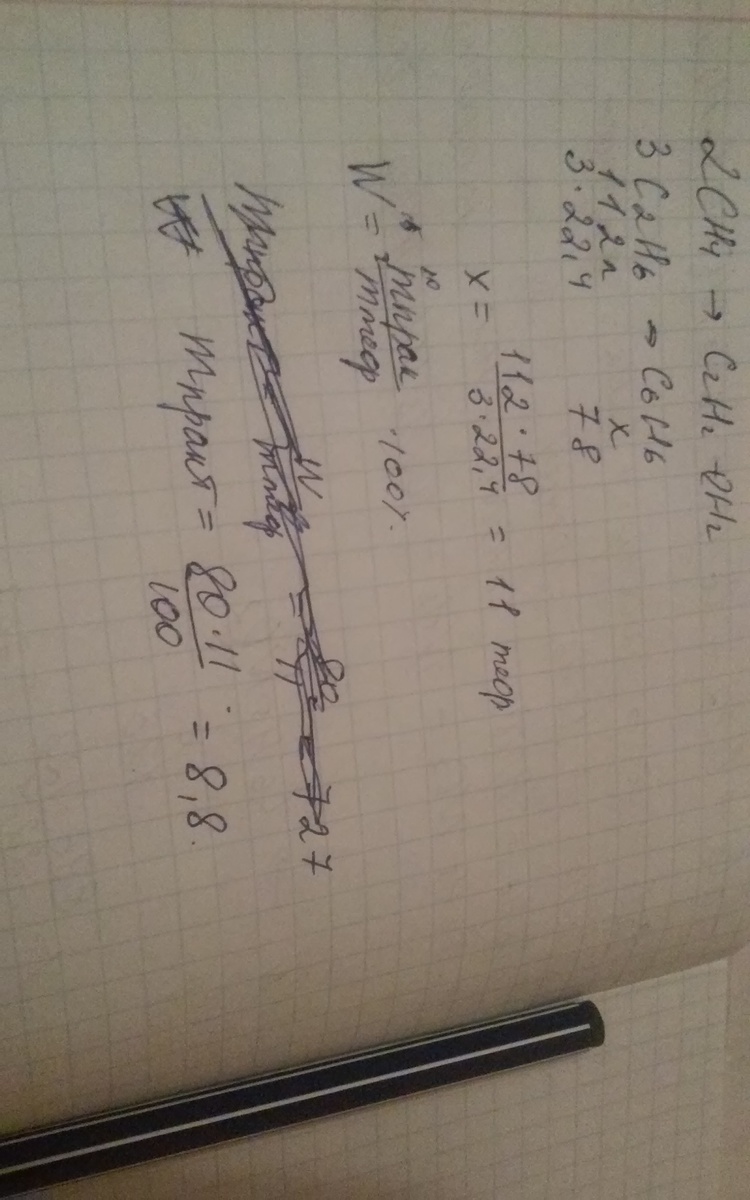 2CH4 → C2H2 + H2
3C2H6 → C6H6
112л x
3·22,4 78
x = 112·78 / 3·22,4 = 11 теор
W = mпрак / mтеор · 100%
W / mтеор = 80 / 11 = 727
mпракт = 80·11 / 100 = 8,8.